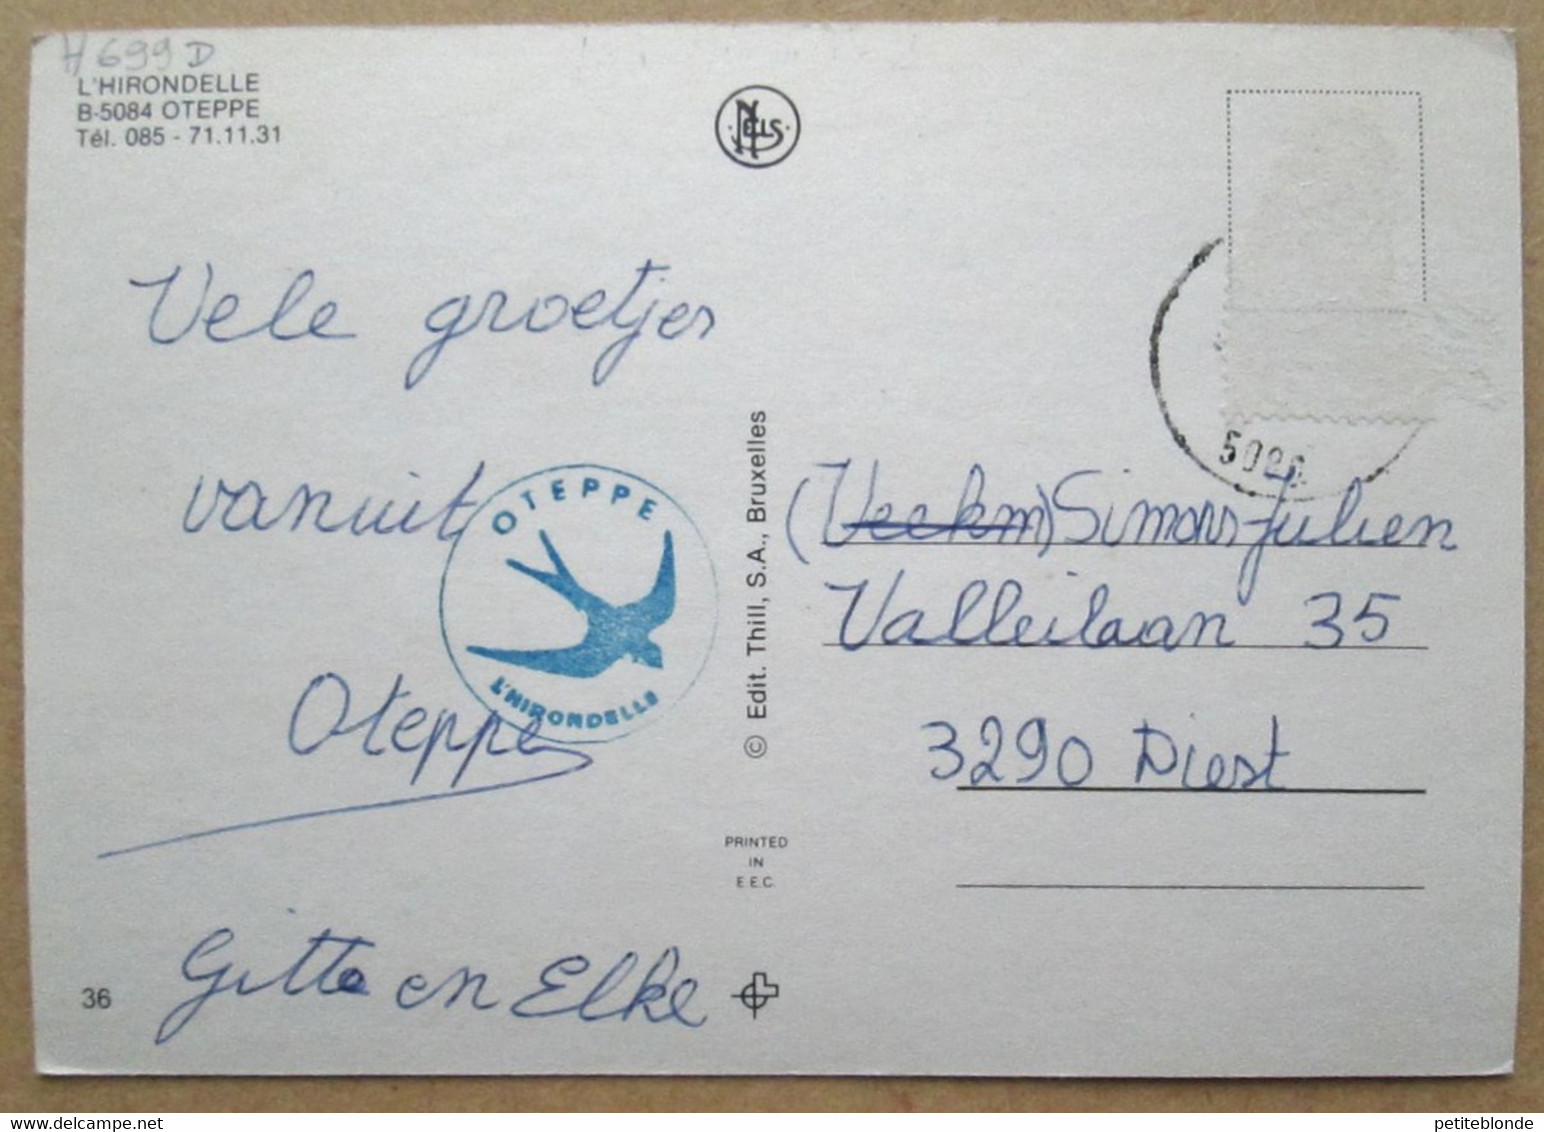 H699D
L'HIRONDELLE
B-5084 OTEPPE
Tél. 085 - 71.11.31
NELS
Vele groetjes
vanuit
Oteppe
OTEPPE
L'HIRONDELLE
Gitte en Elke
36
© Edit. Thill, S.A., Bruxelles
PRINTED
IN
E.E.C.
(Veekm) Simons Julien
Valleilaan 35
3290 Diest
petiteblonde